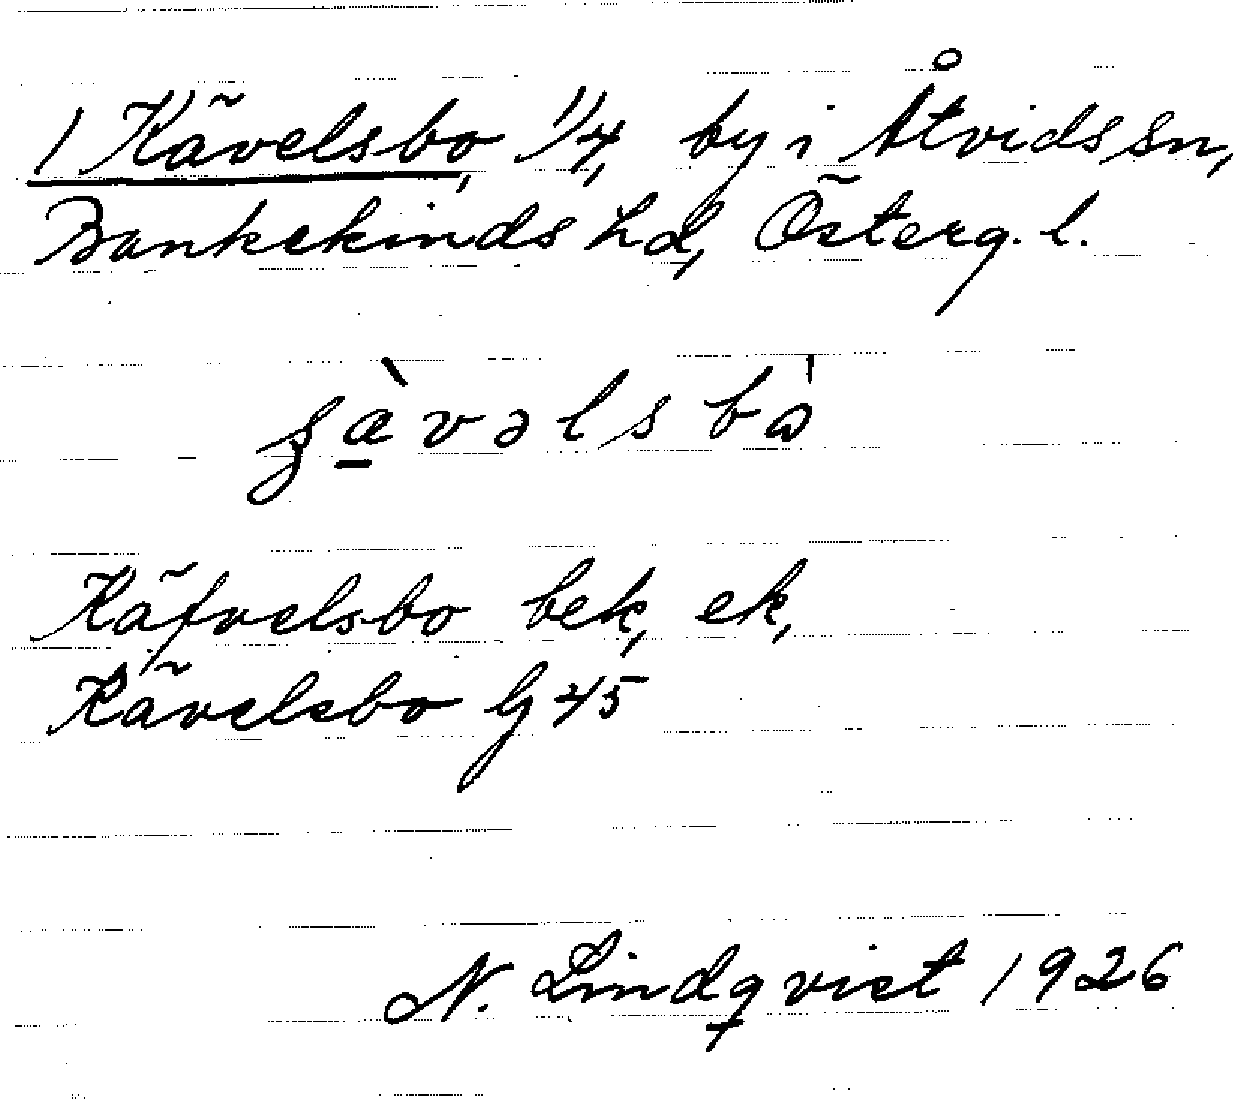 1 Kävelsbo, 1/4, by i Åtvids sn,
Bankekinds hd, Österg. l.
ʂà̠vəlsbὼ
Käfvelsbo bek, ek,
Kävelsbo G 45
N. Lindqvist 1926